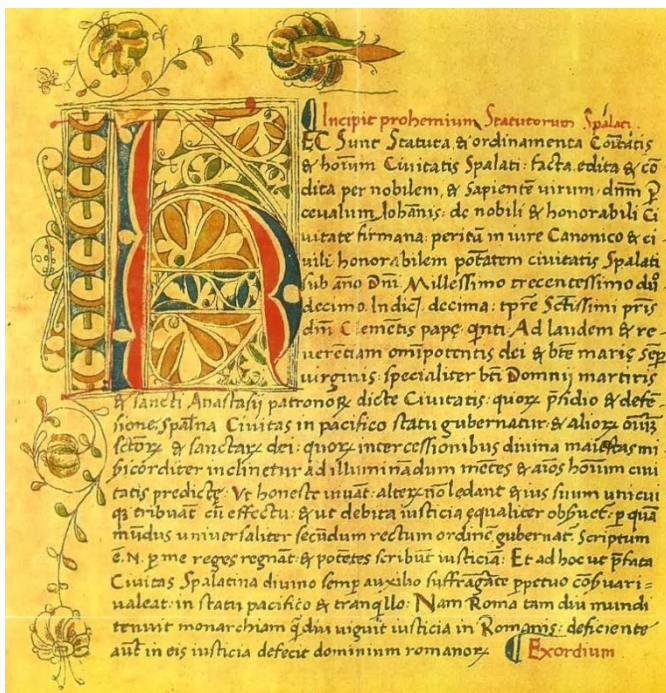 Incipit prohemium Statutorum Spalati
HEC Sunt Statuta & ordinamenta Coĩtatis
& hoĩum Ciuitatis Spalati: facta, edita & cõ
dita per nobilem, & sapientẽ uirum, dñm ꝑ
ceualum Iohãnis: de nobili & honorabili Ci
uitate firmana: peritũ in iure Canonico & ci
uili honorabilem potẽtatem ciuitatis Spalati
sub año Dñi Millessimo trecentessimo duo
decimo. Indicj decima: tpre Sctissimi pr̃is
dñi Clemẽtis papę quinti Ad laudem & re
uerẽtiam omĩpotentis dei & btẽ marię semp
uirginis: specialiter bti Domnii martiris
& sancti Anastasii patronoꝝ dicte Ciuitatis: quoꝝ p̃sidio & defẽ
sione, Spalr̃na Ciuitas in pacifico statu gubernatur: & alioꝝ oũiʒ
sctõꝝ & sanctaꝝ dei: quoꝝ intercessionibus diuina maiestas mi
sicorditer inclinetur ad illuminãdum mẽtes & aĩos hoĩum ciui
tatis predictę. Vt honeste iuuãt: alterꝝ nõ lędant & ius suum unicui
qʒ tribuãt cũ effectu: & ut debita iusticia equaliter obßuet: ꝑ quã
mũdus uniuersaliter secũdum rectum ordinẽ gubernat. Scriptum
ẽ. N. ꝑ me reges regnãt: & potẽtes scribũt iusticiã: Et ad hoc ut p̃fata
Ciuitas Spalatina diuino semꝑ auxilio suffragãte ꝑpetuo cõßuari-
ualeat: in statu pacifico & tranqllo: Nam Roma tam diu mundi
tenuit monarchiam q̃diu uiguit iusticia in Romanis: deficiente
aut̃ in eis iusticia defecit dominium romanoꝝ Exordium